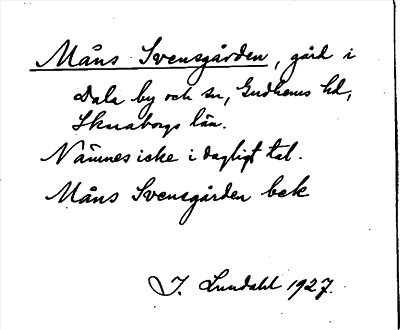 Måns Svensgården, gård i
Dala by och sn, Gudhems hd,
Skaraborgs län.
Nämnes icke i dagligt tal.
Måns Svensgården bek
I. Lundahl 1927.